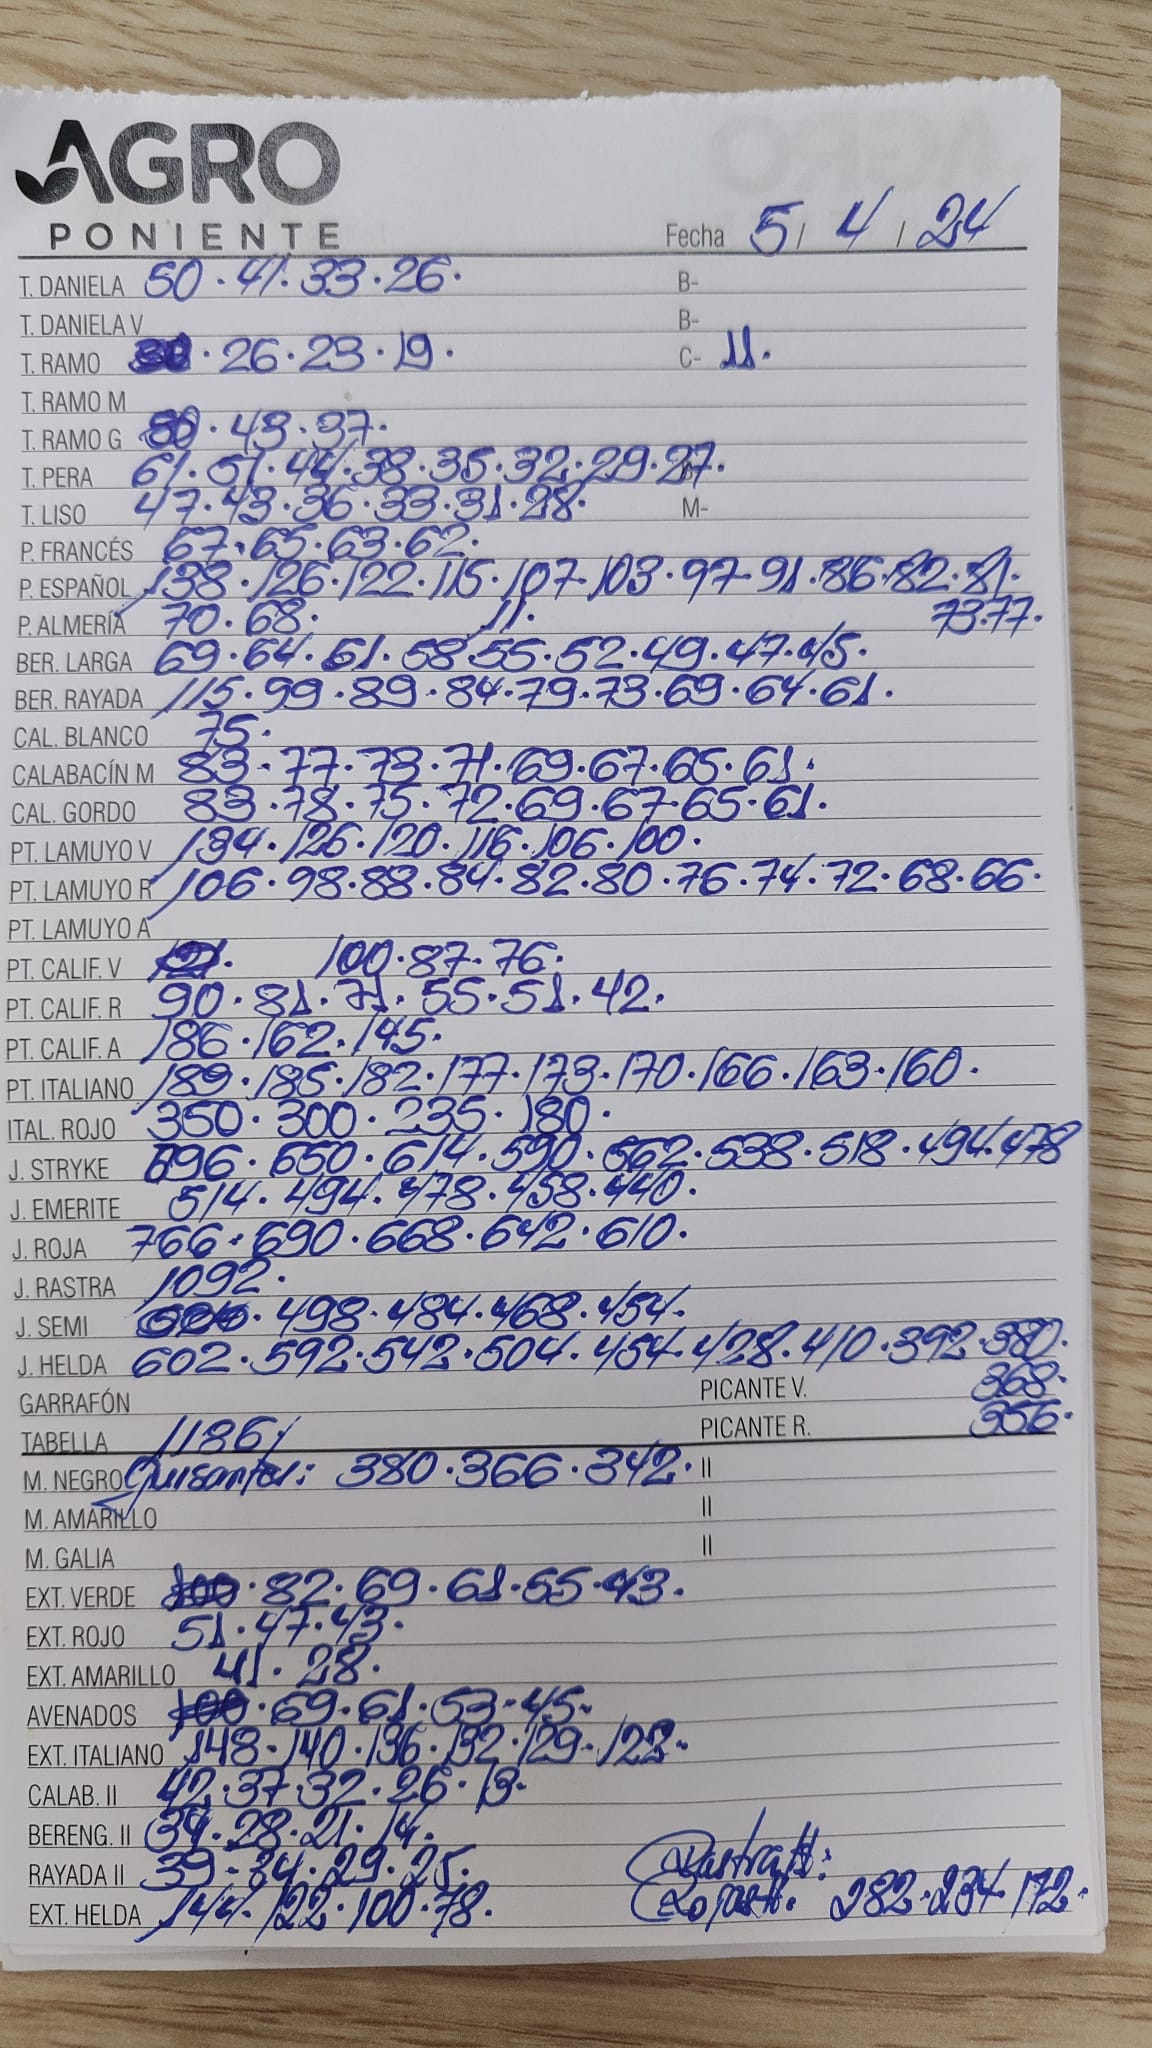 AGRO
PONIENTE
Fecha 5 / 4 / 24
T. DANIELA 50 · 41 · 33 · 26 · B-
T. DANIELA V B-
T. RAMO · 26 · 23 · 19 · C- 11 ·
T. RAMO M
T. RAMO G · 43 · 37 ·
T. PERA 61 · 51 · 44 · 38 · 35 · 32 · 29 · 27 ·
T. LISO 47 · 43 · 36 · 33 · 31 · 28 · M-
P. FRANCÉS 67 · 65 · 63 · 62 ·
P. ESPAÑOL 138 · 126 · 122 · 115 · 107 · 103 · 97 · 91 · 86 · 82 · 81 ·
P. ALMERÍA 70 · 68 · 11 · 73 · 77 ·
BER. LARGA 69 · 64 · 61 · 58 · 55 · 52 · 49 · 47 · 45 ·
BER. RAYADA 115 · 99 · 89 · 84 · 79 · 73 · 69 · 64 · 61 ·
CAL. BLANCO 75 ·
CALABACÍN M 83 · 77 · 73 · 71 · 69 · 67 · 65 · 61 ·
CAL. GORDO 83 · 78 · 75 · 72 · 69 · 67 · 65 · 61 ·
PT. LAMUYO V 134 · 126 · 120 · 116 · 106 · 100 ·
PT. LAMUYO R 106 · 98 · 88 · 84 · 82 · 80 · 76 · 74 · 72 · 68 · 66 ·
PT. LAMUYO A
PT. CALIF. V 100 · 87 · 76 ·
PT. CALIF. R 90 · 81 · 71 · 55 · 51 · 42 ·
PT. CALIF. A 186 · 162 · 145 ·
PT. ITALIANO 189 · 185 · 182 · 177 · 173 · 170 · 166 · 163 · 160 ·
ITAL. ROJO 350 · 300 · 235 · 180 ·
J. STRYKE 696 · 650 · 614 · 590 · 562 · 538 · 518 · 494 · 478
J. EMERITE 514 · 494 · 478 · 458 · 440 ·
J. ROJA 766 · 690 · 668 · 642 · 610 ·
J. RASTRA 1092 ·
J. SEMI · 498 · 484 · 468 · 454 ·
J. HELDA 602 · 592 · 542 · 504 · 454 · 428 · 410 · 392 · 380 ·
GARRAFÓN PICANTE V. 368 ·
TABELLA 1186 / PICANTE R. 356 ·
M. NEGRO Guisantes: 380 · 366 · 342 · II
M. AMARILLO II
M. GALIA II
EXT. VERDE · 82 · 69 · 61 · 55 · 43 ·
EXT. ROJO 51 · 47 · 43 ·
EXT. AMARILLO 41 · 28 ·
AVENADOS · 69 · 61 · 53 · 45 ·
EXT. ITALIANO 148 · 140 · 136 · 132 · 129 · 123 ·
CALAB. II 42 · 37 · 32 · 26 · 13 ·
BERENG. II 34 · 28 · 21 · 14 ·
RAYADA II 39 · 34 · 29 · 25 ·
EXT. HELDA 144 · 122 · 100 · 78 · 282 · 234 · 172 ·